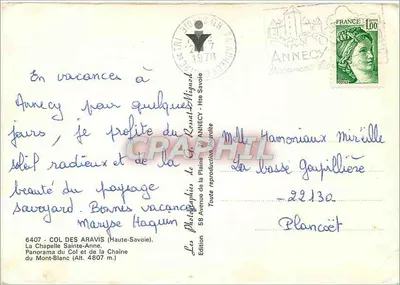 En vacances à
Annecy pour quelques
jours, je profite du
soleil radieux et de la
beauté du paysage
savoyard. Bonnes vacances
Maryse Haquin
6407 - COL DES ARAVIS (Haute-Savoie).
La Chapelle Sainte-Anne.
Panorama du Col et de la Chaîne
du Mont-Blanc (Alt. 4807 m.)
Les Photographies de G. Rosset-Mignod
Edition 58 Avenue de la Plaine ANNECY - Hte Savoie
Toute reproduction interdite
1978
ANNECY
FRANCE
1,00
CPHRTIL
Melle Hamoniaux Mireille
La basse Gaspillière
22130
Plancoët